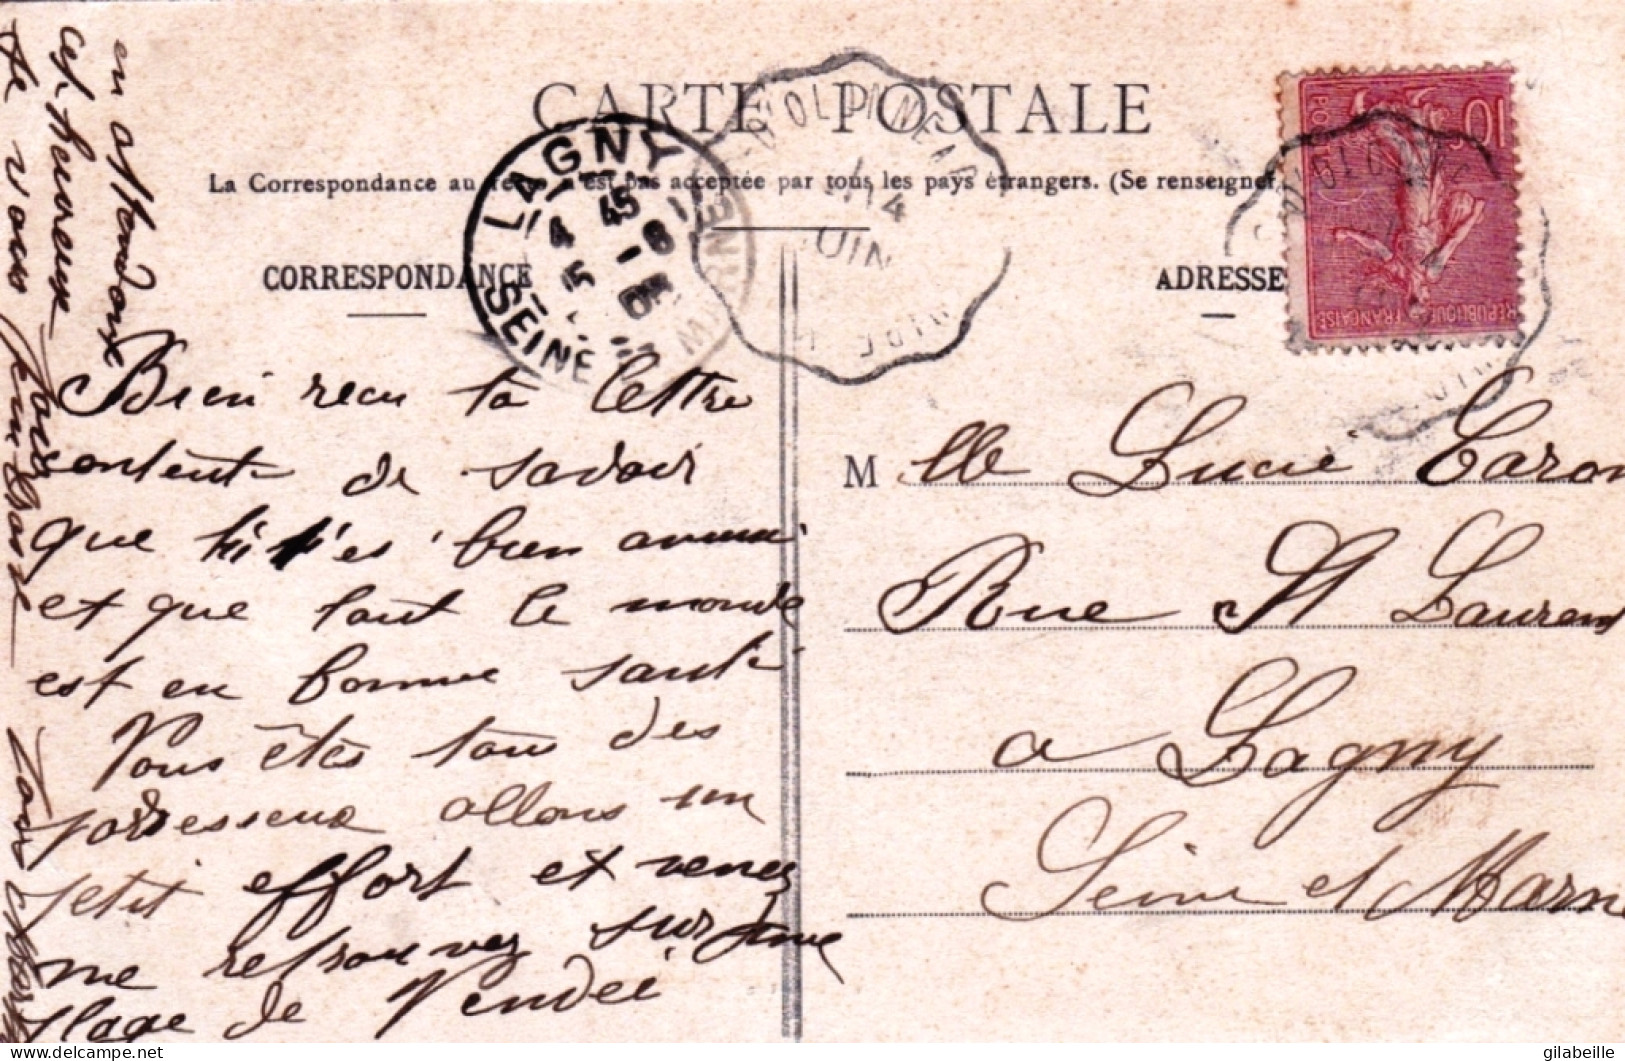 CARTE POSTALE
La Correspondance au n'est pas acceptée par tous les pays étrangers. (Se renseigner
CORRESPONDANCE
ADRESSE
LAGNY
SEINE MARNE
4 45
15 -8
14
JUIN
10
POS
REPUBLIQUE FRANÇAISE
Bien reçu ta lettre
contente de savoir
que bien
et que tout le monde
est en bonne santé
Vous êtes tous des
paresseux allons un
petit effort et venez
me retrouver sur
plage de Vendée
en attendant
cet heureux jour
Je vous
M lle Lucie Caron
Rue St Laurent
a Lagny
Seine et Marne
delcampe.net
gilabeille